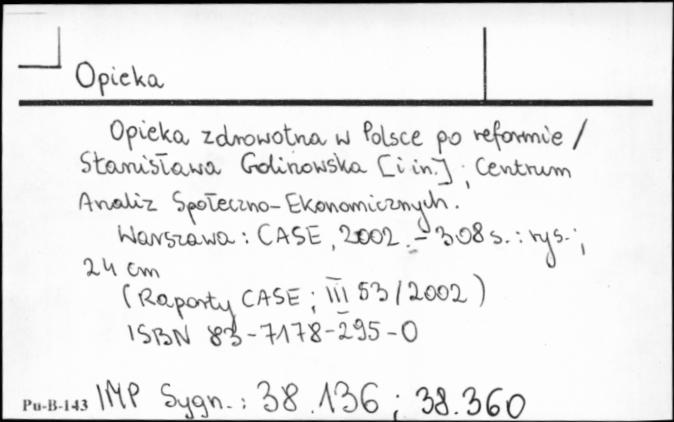 Opieka
Opieka zdrowotna w Polsce po reformie /
Stanisława Golinowska [i in.] ; Centrum
Analiz Społeczno-Ekonomicznych.
Warszawa : CASE, 2002. - 308 s. : rys. ;
24 cm
(Raporty CASE ; 53/2002)
ISBN 83-7178-295-0
Pu-B-143 IMP Sygn. : 38.136 ; 38.360